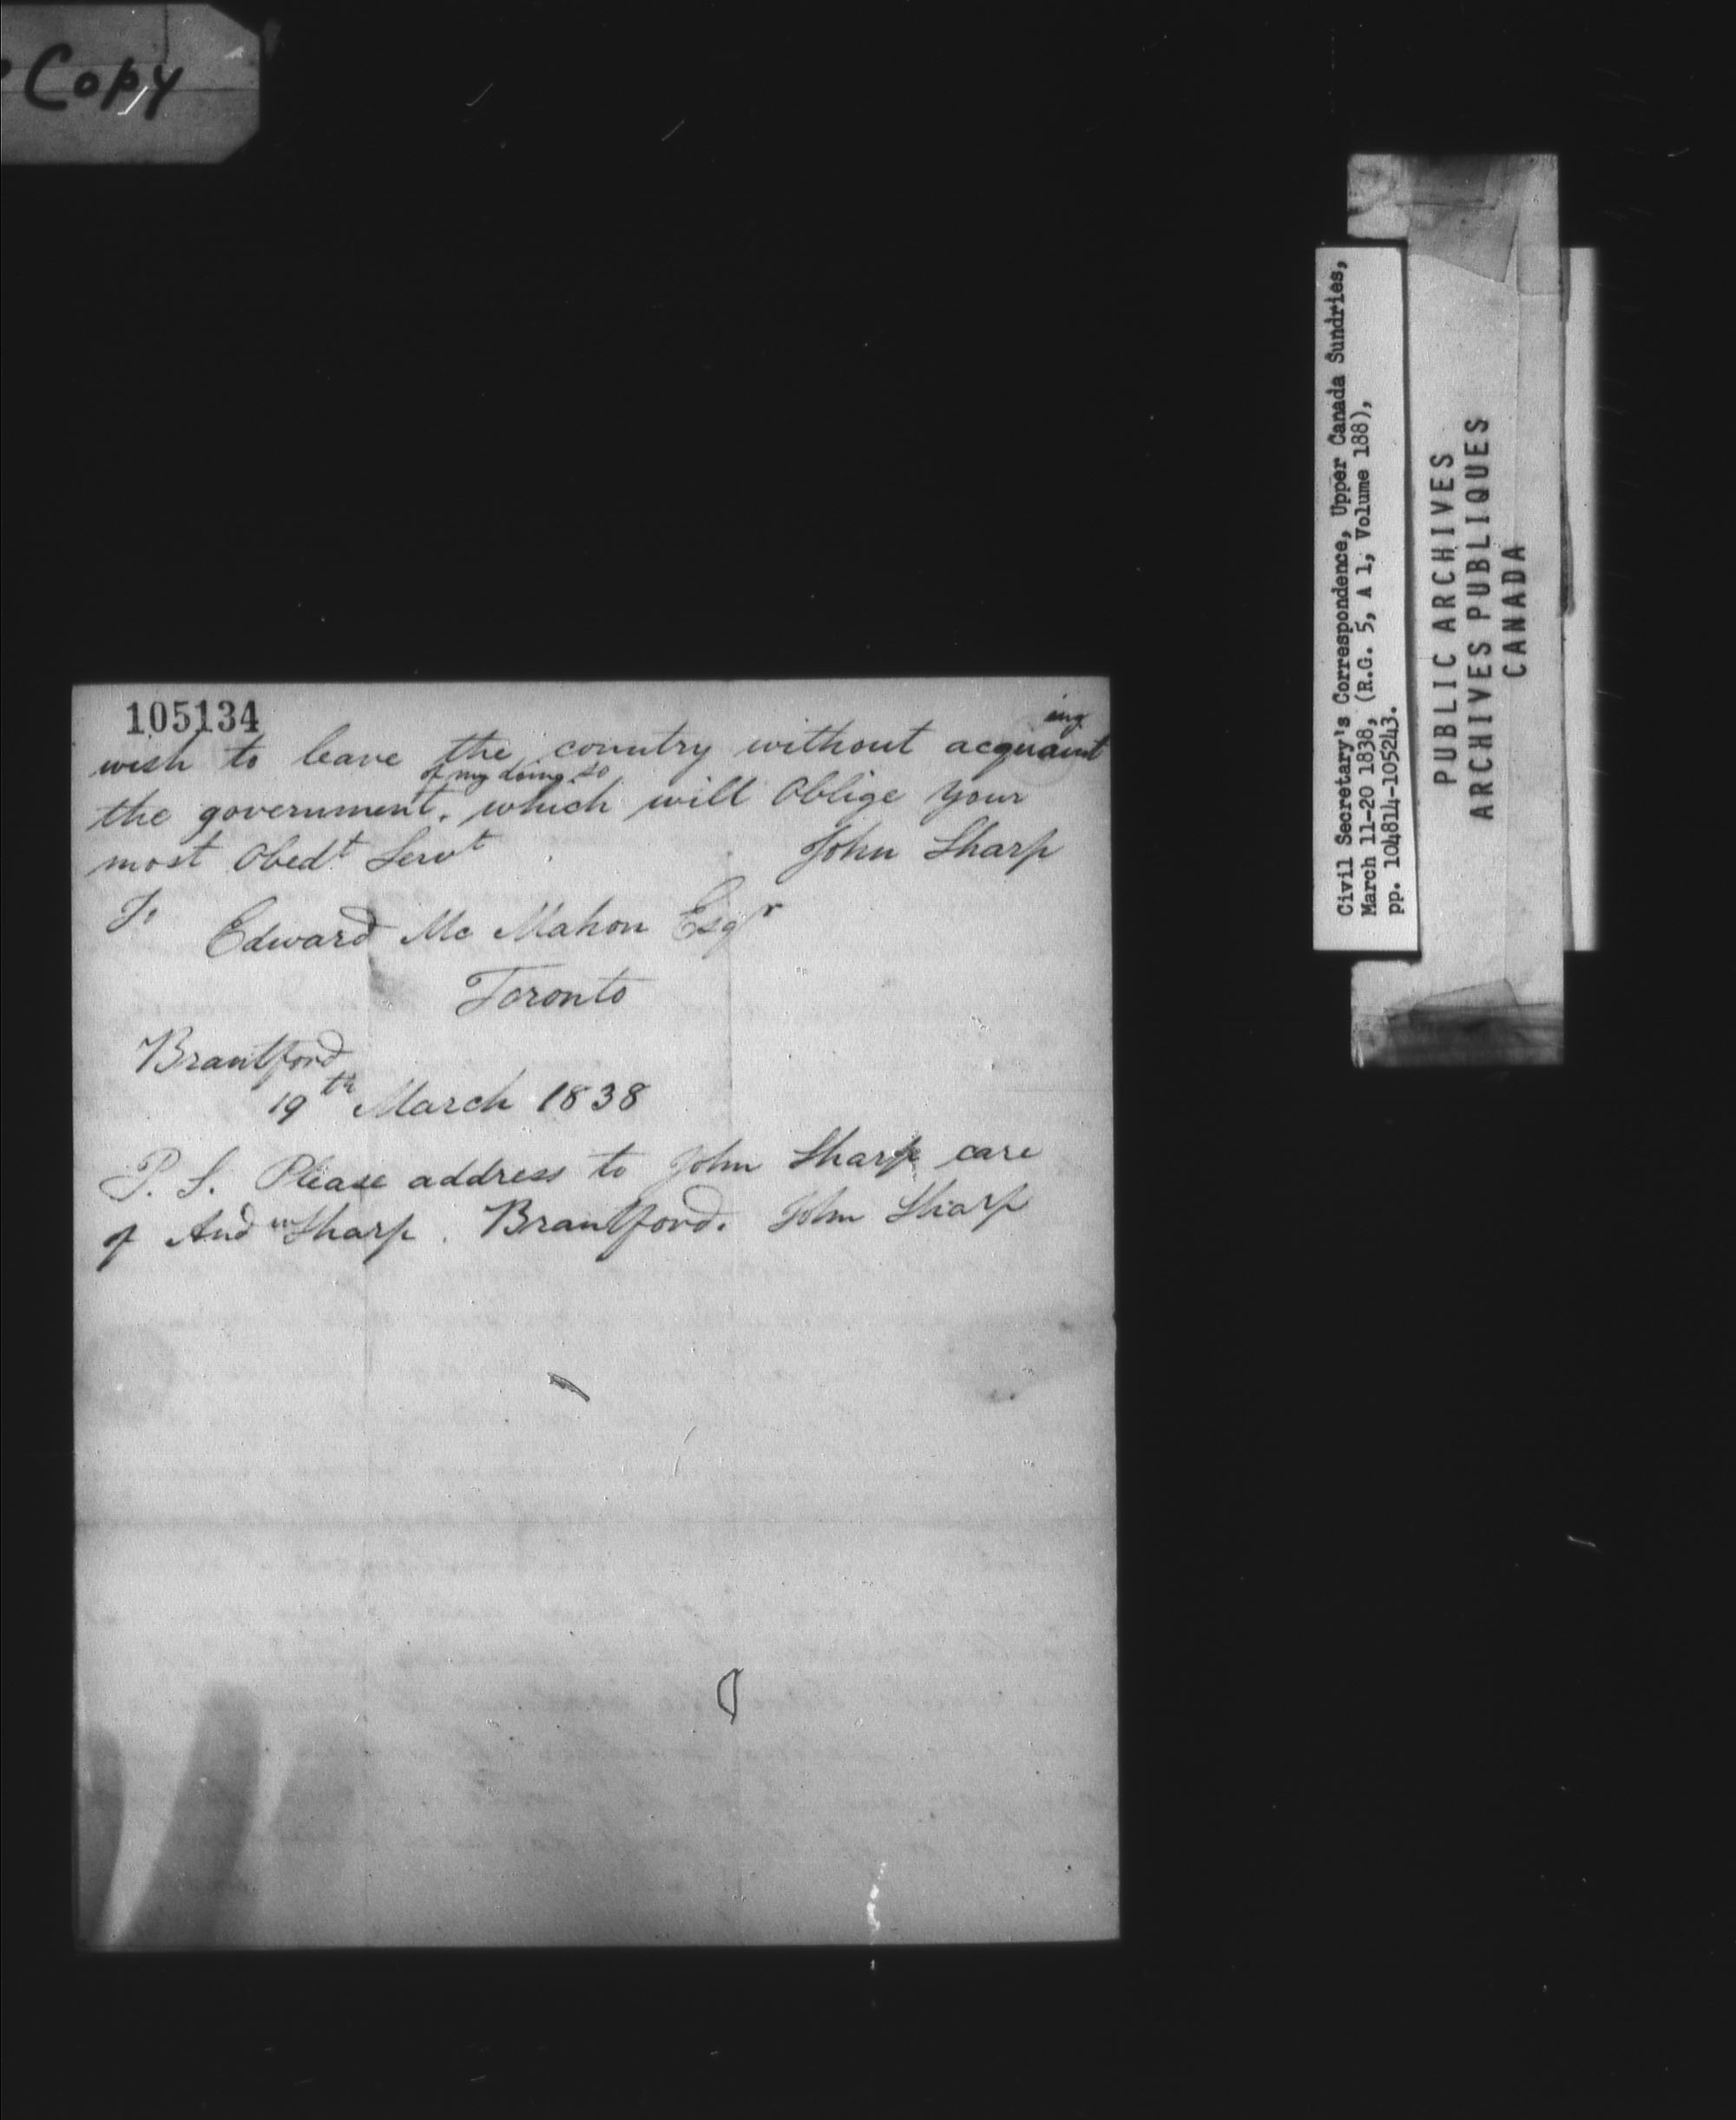 Copy
105134
wish to leave the country without acquainting
the government of my doing so, which will Oblige your
most Obedt Servt John Sharp
To
Edward Mc Mahon Esqr
Toronto
Brantford
19th March 1838
P. S. Please address to John Sharp care
of Andw Sharp. Brantford. John Sharp
Civil Secretary's Correspondence, Upper Canada Sundries,
March 11-20 1838, (R.G. 5, A 1, Volume 188),
pp. 104814-105243.
PUBLIC ARCHIVES
ARCHIVES PUBLIQUES
CANADA